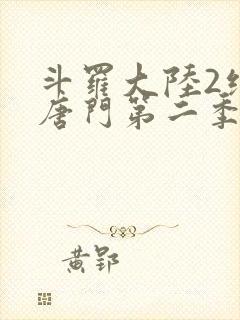 斗羅大陸2
唐門第二季
黃郢